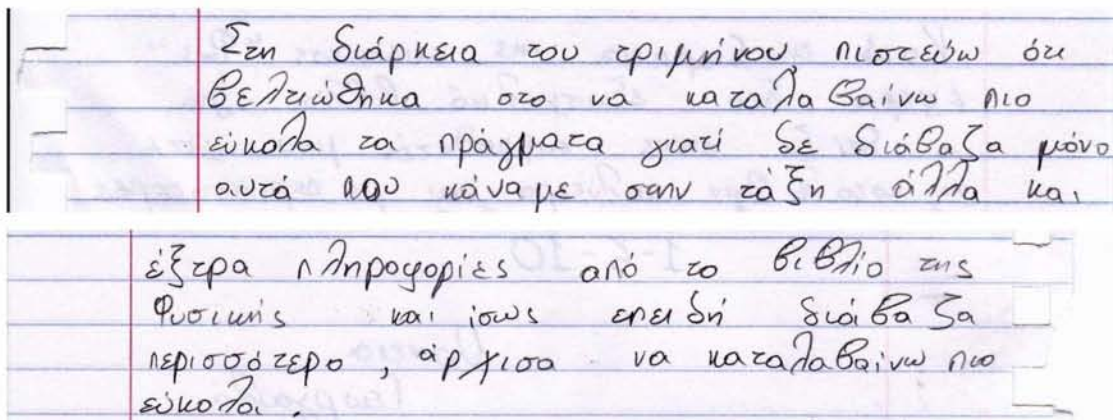 Στη διάρκεια του τριμήνου πιστεύω ότι
βελτιώθηκα στο να καταλαβαίνω πιο
εύκολα τα πράγματα γιατί δε διάβαζα μόνο
αυτά που κάναμε στην τάξη άλλα και
έξτρα πληροφορίες από το βιβλίο της
Φυσικής και ίσως επειδή διάβαζα
περισσότερο, άρχισα να καταλαβαίνω πιο
εύκολα.